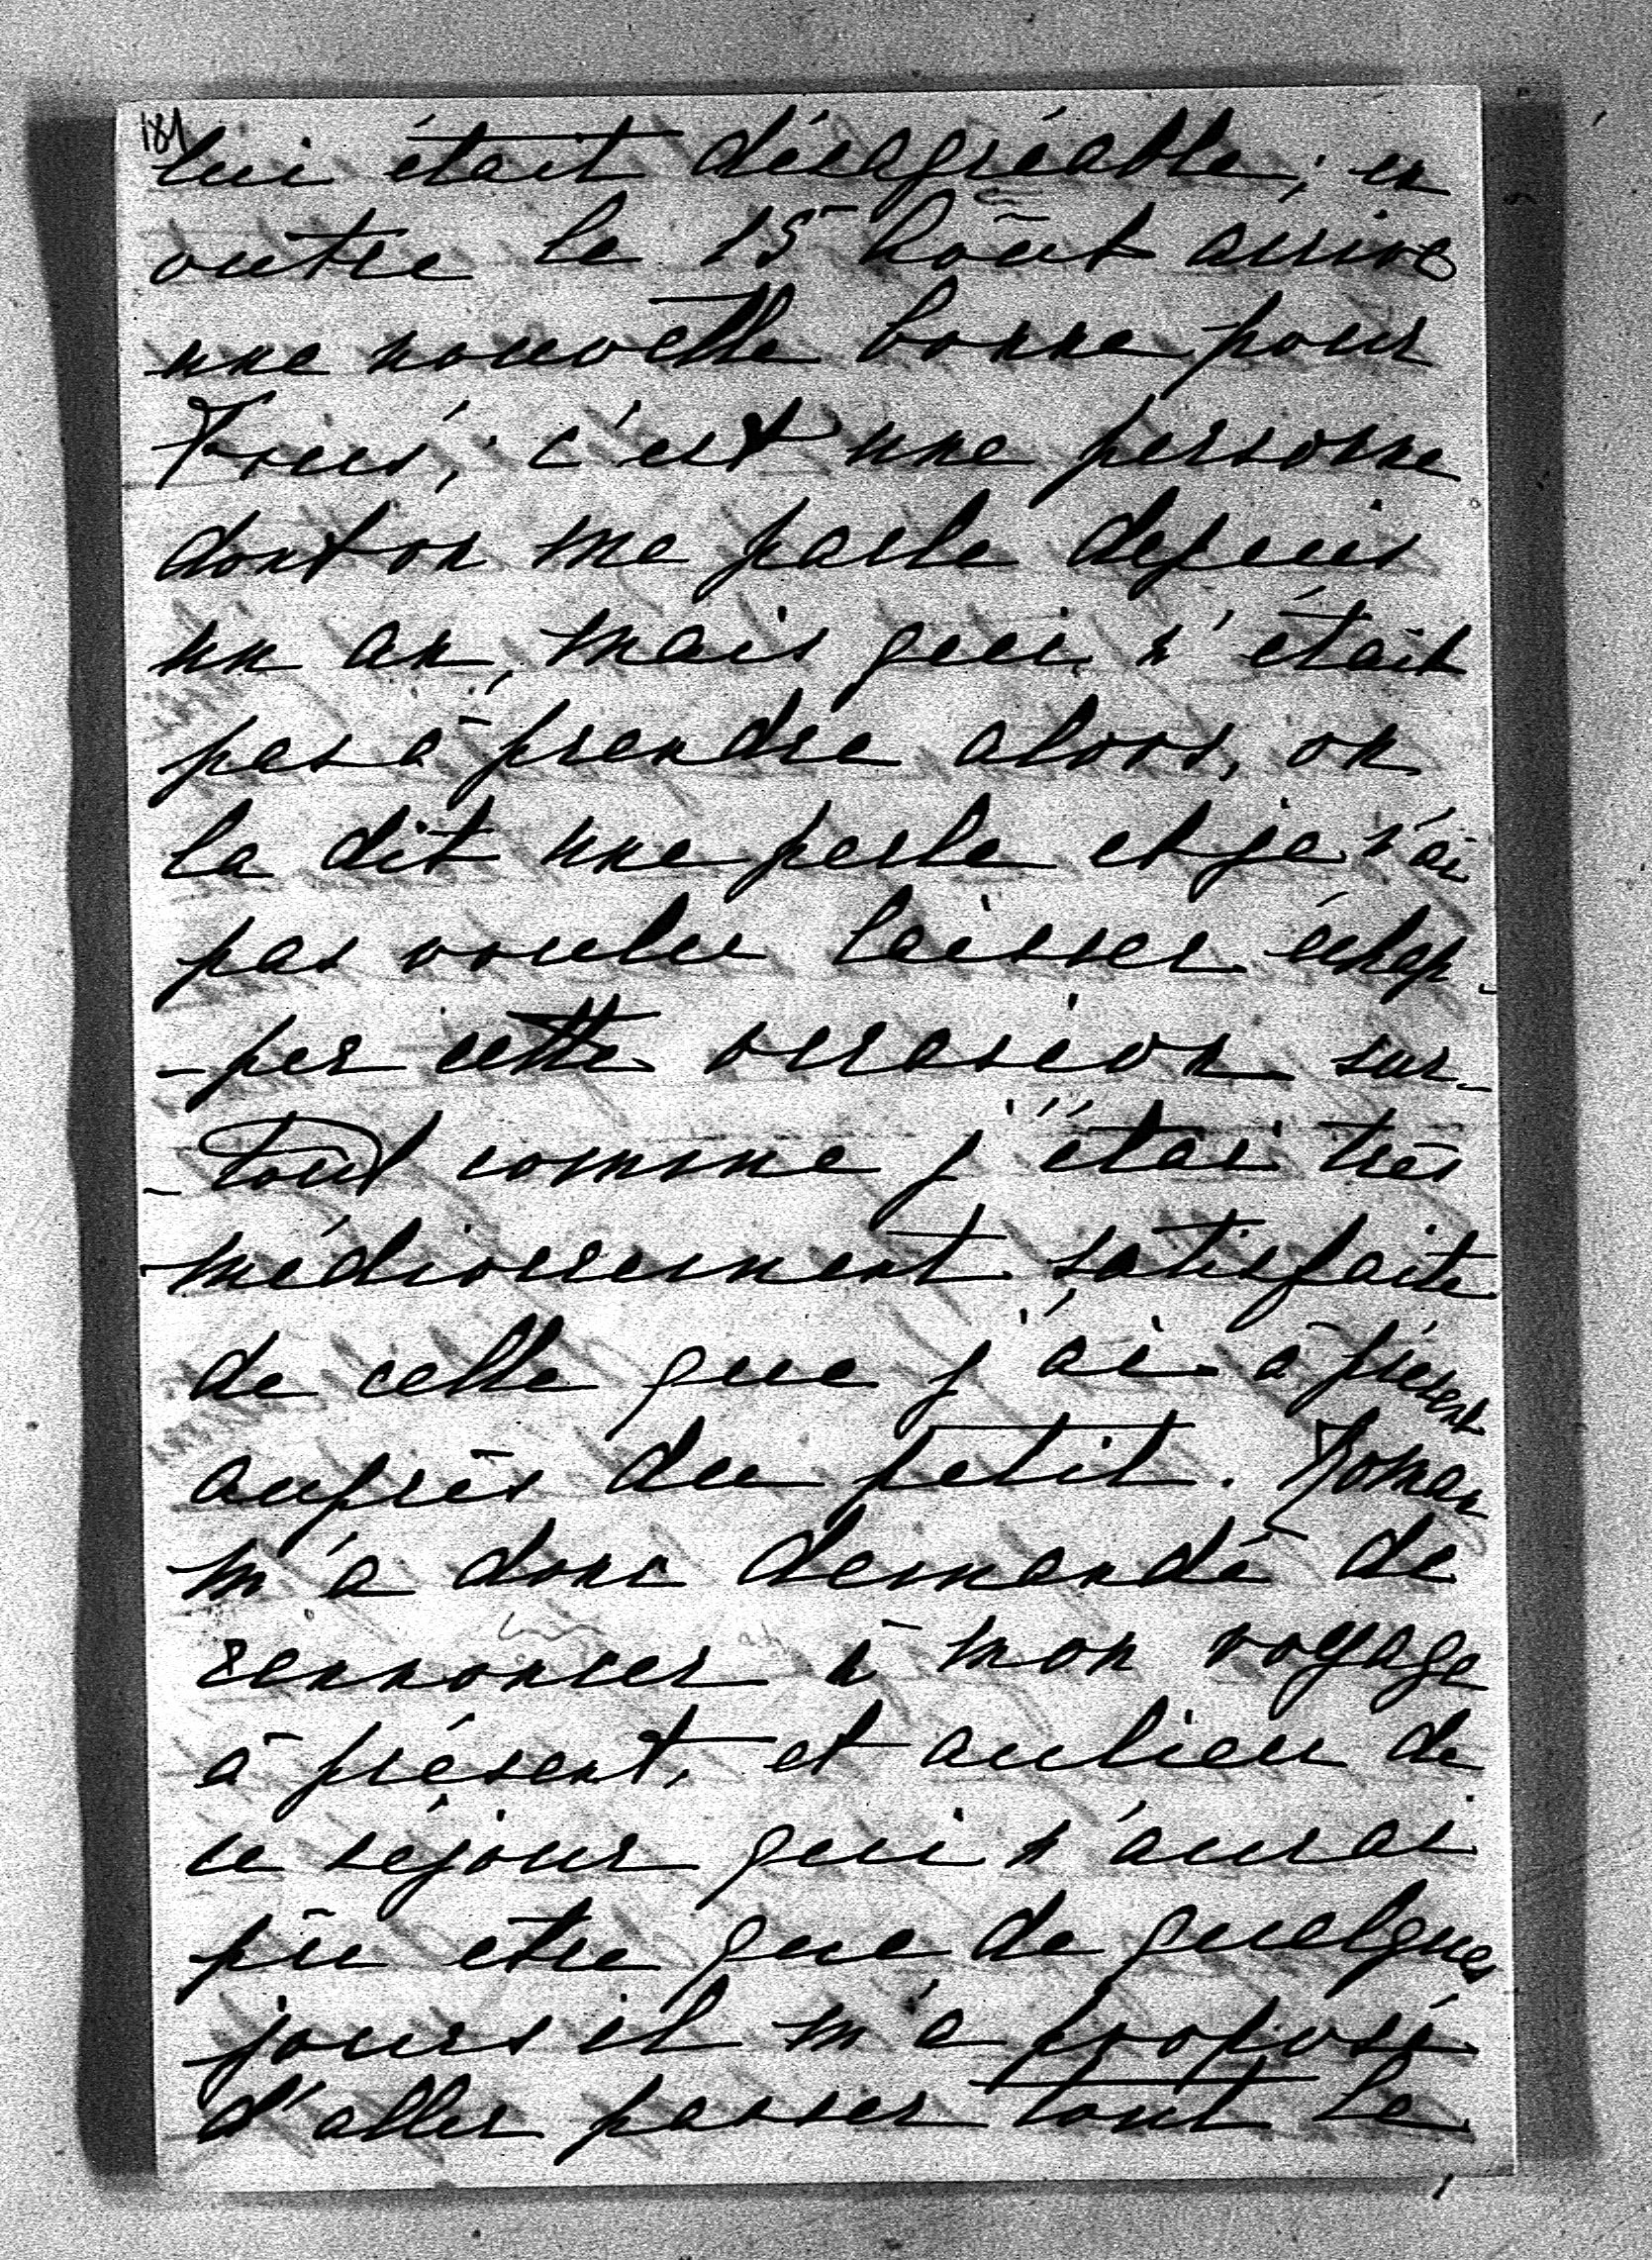 181
lui était désagréable; en
outre le 15 Août arrive
une nouvelle bonne pour
c'est une personne
dont on me parle depuis
un an, mais qui n'était
pas à prendre alors, on
la dit une perle et je n'ai
pas voulu laisser échap-
-per cette occasion sur-
-tout comme j'étai très
médiocrement satisfaite
de celle que j'ai à présent
auprès du petit. Roman
m'a donc demandé de
rennoncer à mon voyage
à présent, et aulieu de
ce séjour qui n'aurai
pû etre que de quelques
jours il m'a proposé
d'aller passer tout le